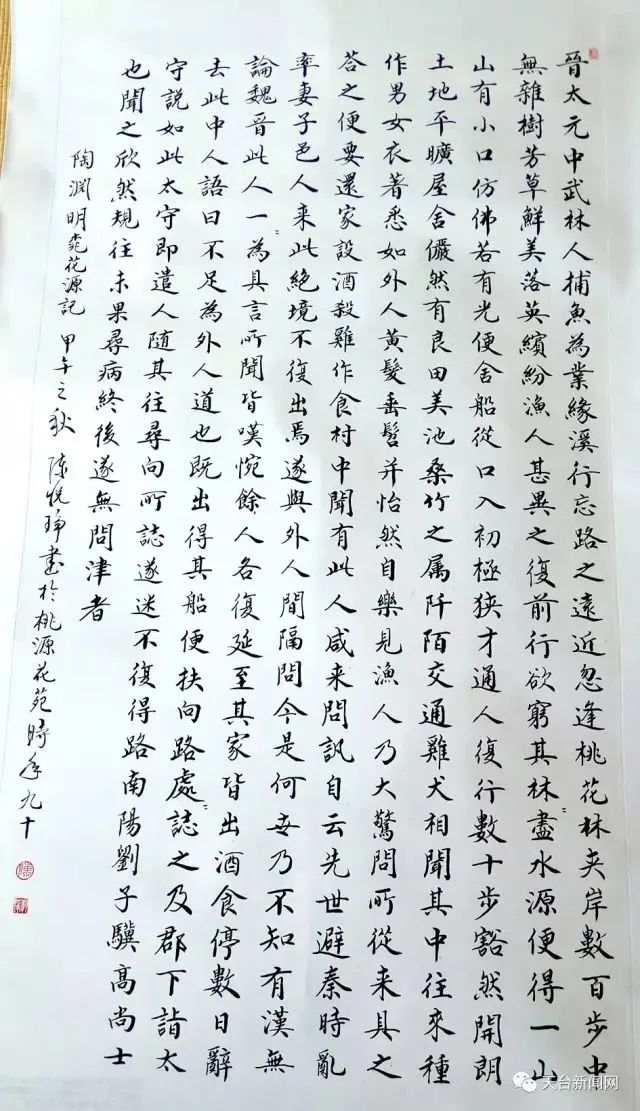 晉太元中武林人捕魚為業緣溪行忘路之遠近忽逢桃花林夾岸數百步中
無雜樹芳草鮮美落英繽紛漁人甚異之復前行欲窮其林〻盡水源便得一山
山有小口仿佛若有光便舍船從口入初極狹才通人復行數十步豁然開朗
土地平曠屋舍儼然有良田美池桑竹之属阡陌交通雞犬相聞其中往來種
作男女衣著悉如外人黃髮垂髫并怡然自樂見漁人乃大驚問所從来具之
荅之便要還家設酒殺雞作食村中聞有此人咸来問訊自云先世避秦時亂
率妻子邑人来此絕境不復出焉遂與外人間隔問今是何世乃不知有漢無
論魏晉此人一〻為具言所聞皆嘆惋餘人各復延至其家皆出酒食停數日辭
去此中人語曰不足為外人道也既出得其船便扶向路處〻誌之及郡下詣太
守説如此太守即遣人隨其往尋向所誌遂迷不復得路南陽劉子驥高尚士
也聞之欣然規往未果尋病終後遂無問津者
陶渊明桃花源記 甲午之秋 陳悦琤書於桃源花苑時年九十
天台新闻网